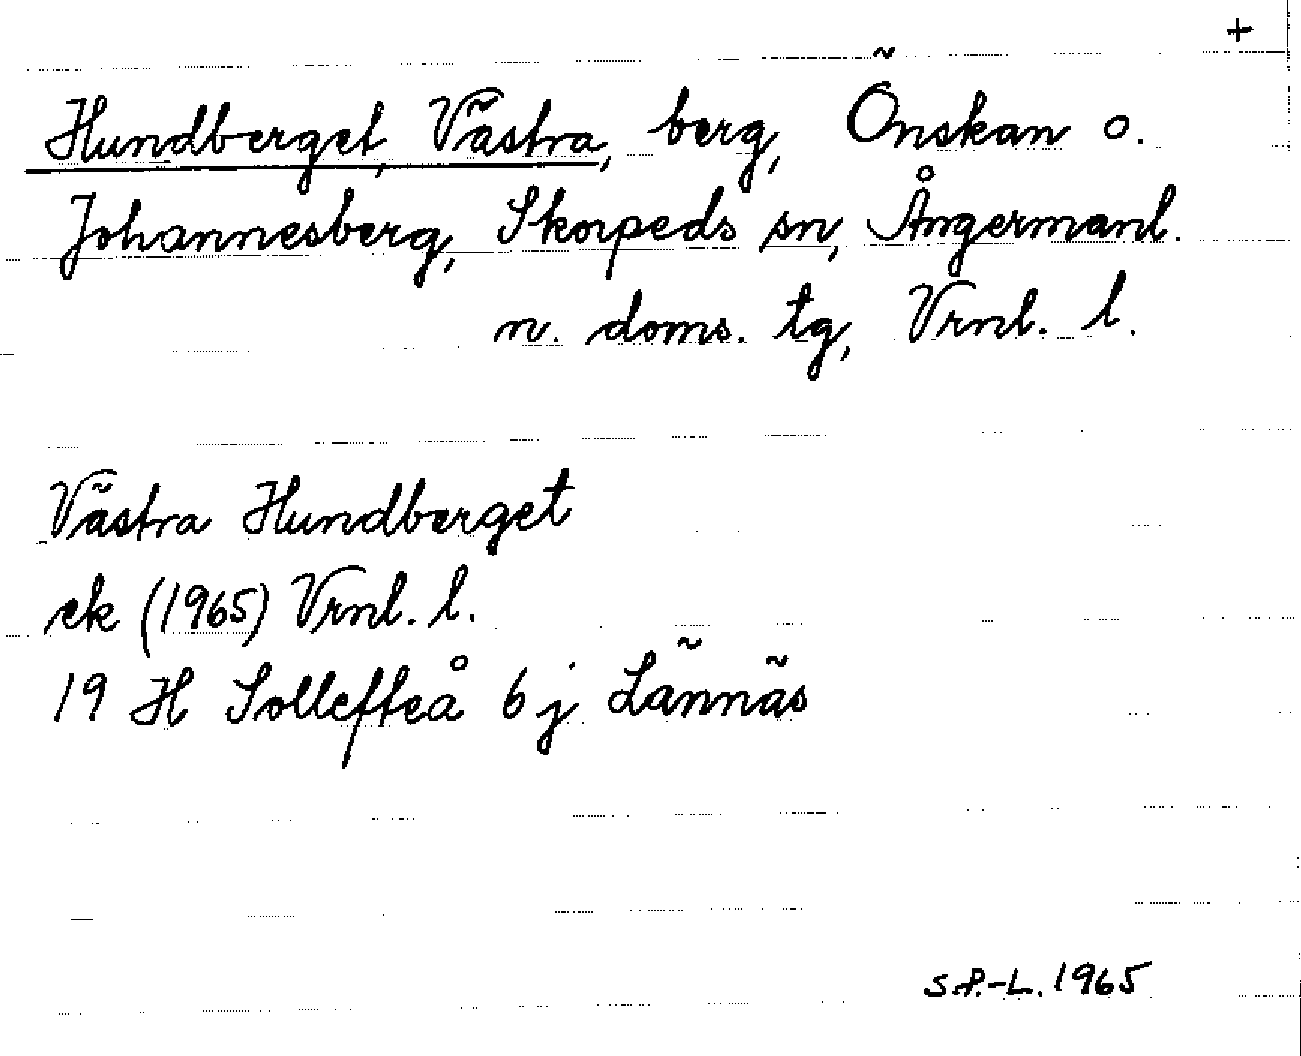 +
Hundberget, Västra, berg, Önskan o.
Johannesberg, Skorpeds sn, Ångermanl.
n. doms. tg, Vrnl. l.
Västra Hundberget
ek (1965) Vrnl. l.
19 H Sollefteå 6 j Lännäs
S.P.-L. 1965